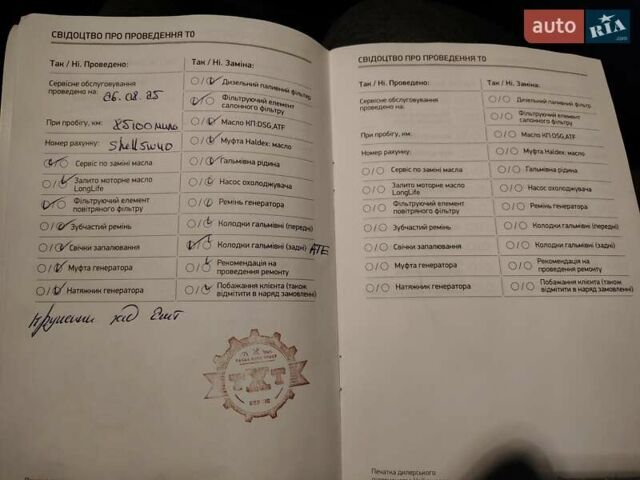 auto RIA.com
СВІДОЦТВО ПРО ПРОВЕДЕННЯ ТО
Так / Ні. Проведено:
Так / Ні. Заміна:
Сервісне обслуговування
проведено на: 06.08.25
При пробігу, км: 85100
Номер рахунку: Shell 5w40
Сервіс по заміні масла
Залито моторне масло
LongLife
Фільтруючий елемент
повітряного фільтру
Зубчастий ремінь
Свічки запалювання
Муфта генератора
Натяжник генератора
Дизельний паливний фільтр
Фільтруючий елемент
салонного фільтру
Масло КП:DSG,ATF
Муфта Haldex: масло
Гальмівна рідина
Насос охолоджувача
Ремінь генератора
Колодки гальмівні (передні)
Колодки гальмівні (задні) ATE
Рекомендація на
проведення ремонту
Побажання клієнта (також
відмітити в наряд замовленні)
ТХТ
СВІДОЦТВО ПРО ПРОВЕДЕННЯ ТО
Так / Ні. Проведено:
Так / Ні. Заміна:
Сервісне обслуговування
проведено на:
При пробігу, км:
Номер рахунку:
Сервіс по заміні масла
Залито моторне масло
LongLife
Фільтруючий елемент
повітряного фільтру
Зубчастий ремінь
Свічки запалювання
Муфта генератора
Натяжник генератора
Дизельний паливний фільтр
Фільтруючий елемент
салонного фільтру
Масло КП:DSG,ATF
Муфта Haldex: масло
Гальмівна рідина
Насос охолоджувача
Ремінь генератора
Колодки гальмівні (передні)
Колодки гальмівні (задні)
Рекомендація на
проведення ремонту
Побажання клієнта (також
відмітити в наряд замовленні)
Печатка дилерського